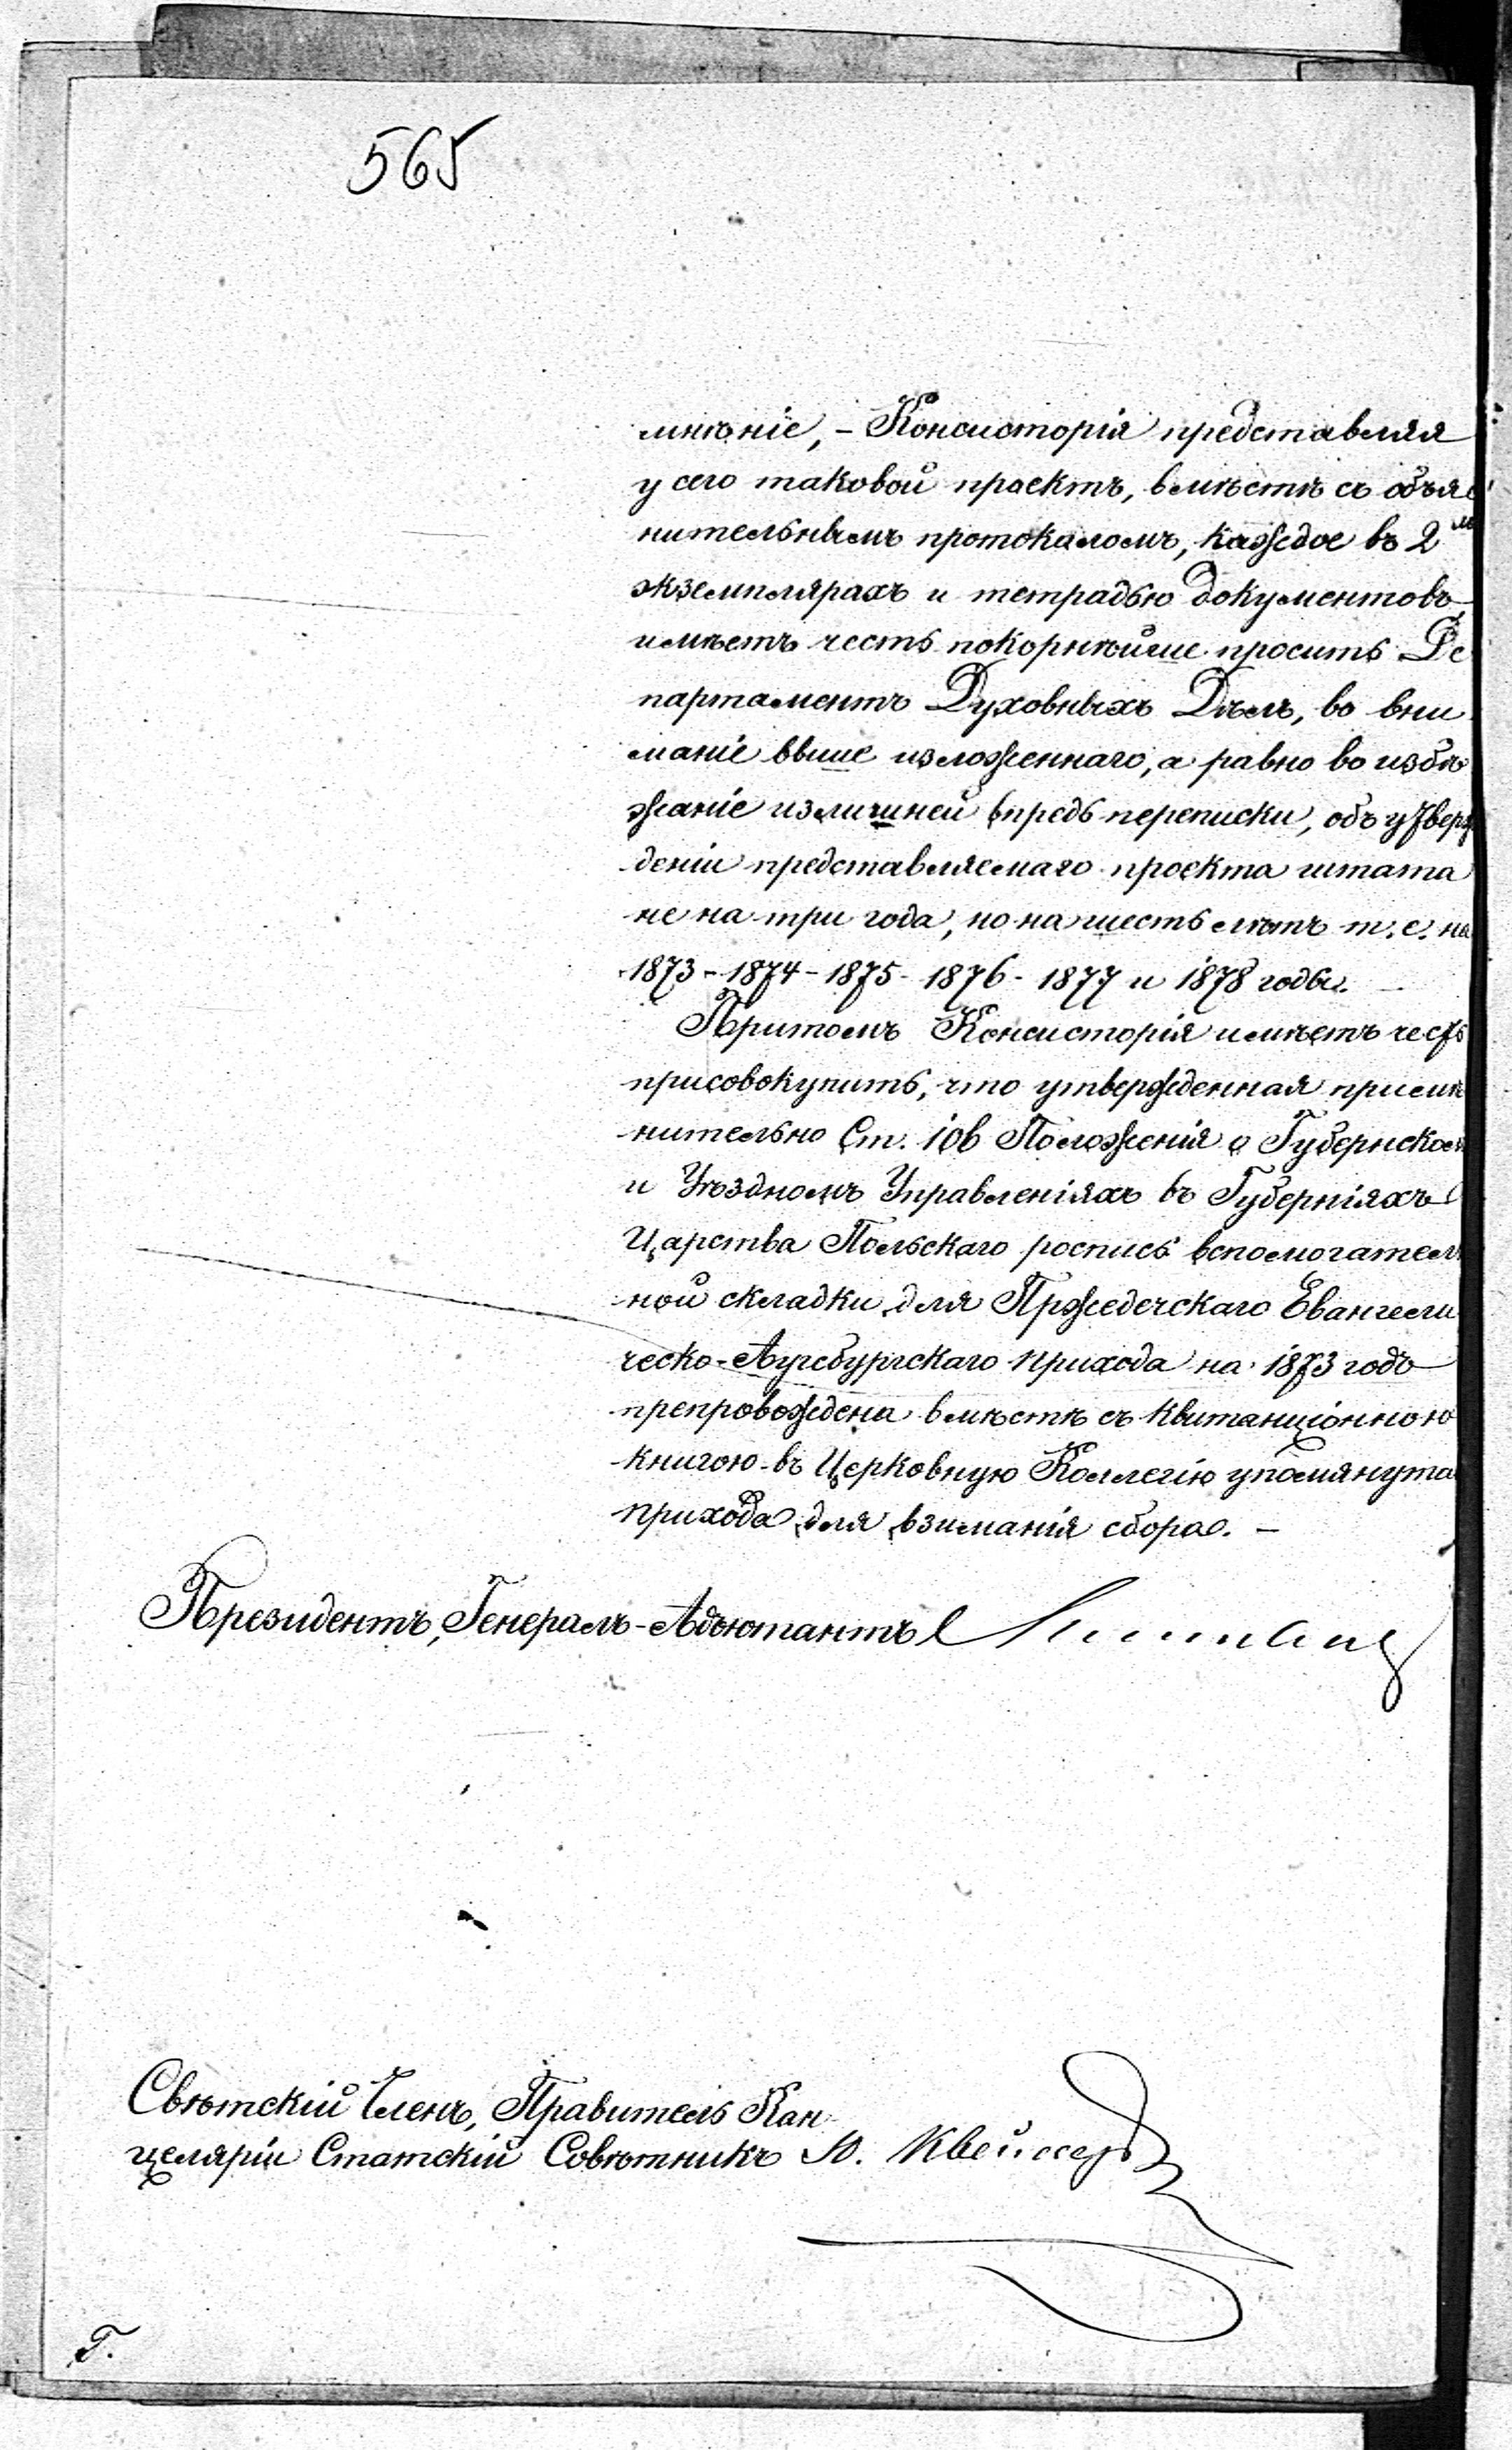 565
мнѣніе, - Консисторія представляя
у сего таковой проектъ, вмѣстѣ съ объяс
нительнымъ протоколомъ, каждое въ 2хъ
экземплярахъ и тетрадью документовъ,
имѣетъ честь покорнѣйше просить Де
партаментъ Духовныхъ Дѣлъ, во вни
маніе выше изложеннаго, а равно во избѣ
жаніе излишней впредь переписки, объ утверж
деніи представляемаго проекта штата
не на три года, но на шесть лѣтъ т. е. на
1873 - 1874 - 1875 - 1876 - 1877 и 1878 годы. -
Притомъ Консисторія имѣетъ честь
присовокупить, что утвержденная примѣ
нительно Ст. 106 Положенія о Губернском
и Уѣздномъ Управленіяхъ въ Губерніяхъ
Царства Польскаго роспись вспомогатель
ной складки для Пржедечскаго Евангели
ческо-Аугсбургскаго прихода на 1873 годъ
препровождена вмѣстѣ съ квитанціонною
книгою въ Церковную Коллегію упомянута
прихода для взиманія сбора. -
Президентъ, Генералъ-Адъютантъ
Свѣтскій Членъ, Правитель Кан-
целяріи Статскій Совѣтникъ Ю. Квейссеръ
Г.